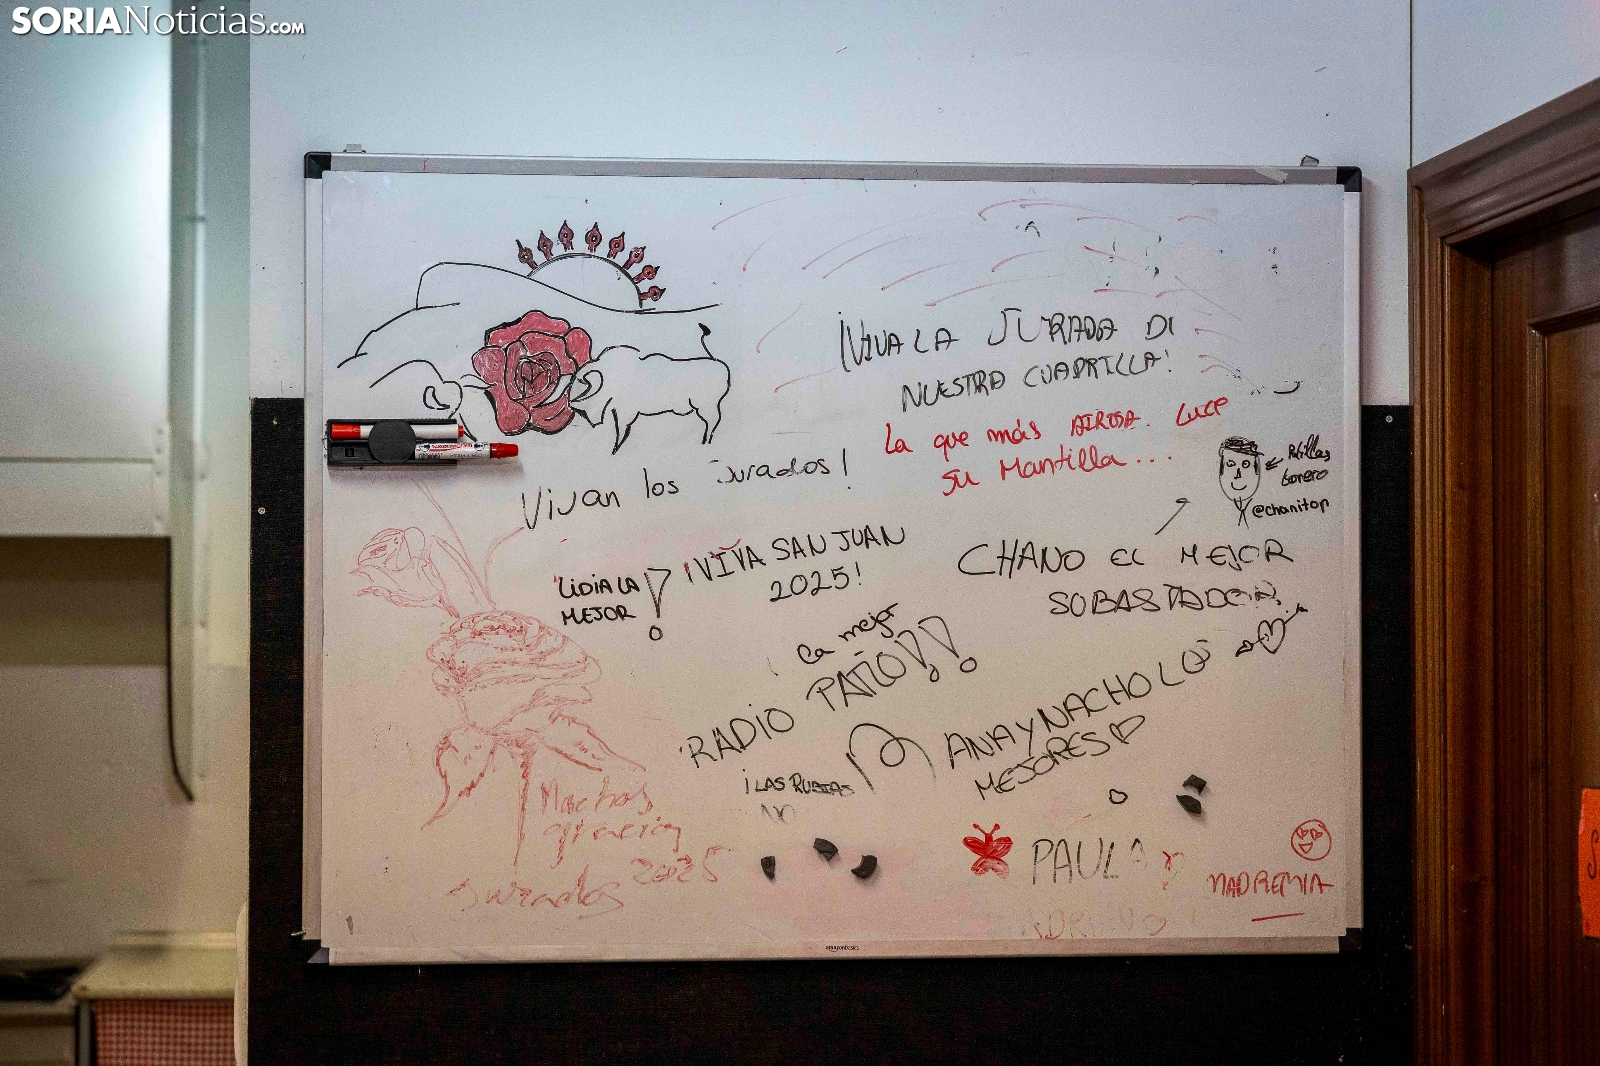 SORIANoticias.com
¡VIVA LA JURADA DI
NUESTRA CUADRILLA!
La que más AIROSA. Luce
su Mantilla...
Vivan los jurados!
Patillas
torero
@chanitop
¡VIVA SAN JUAN
2025!
LIDIA LA
MEJOR!
CHANO EL MEJOR
SOBASTADOR
La mejor
RADIO PATIO!!
ANA Y NACHO LOS
MEJORES
¡LAS RUBIAS
NO
Muchas
gracias
Jurados 2025
PAULA
MADREMIA
amazonbasics